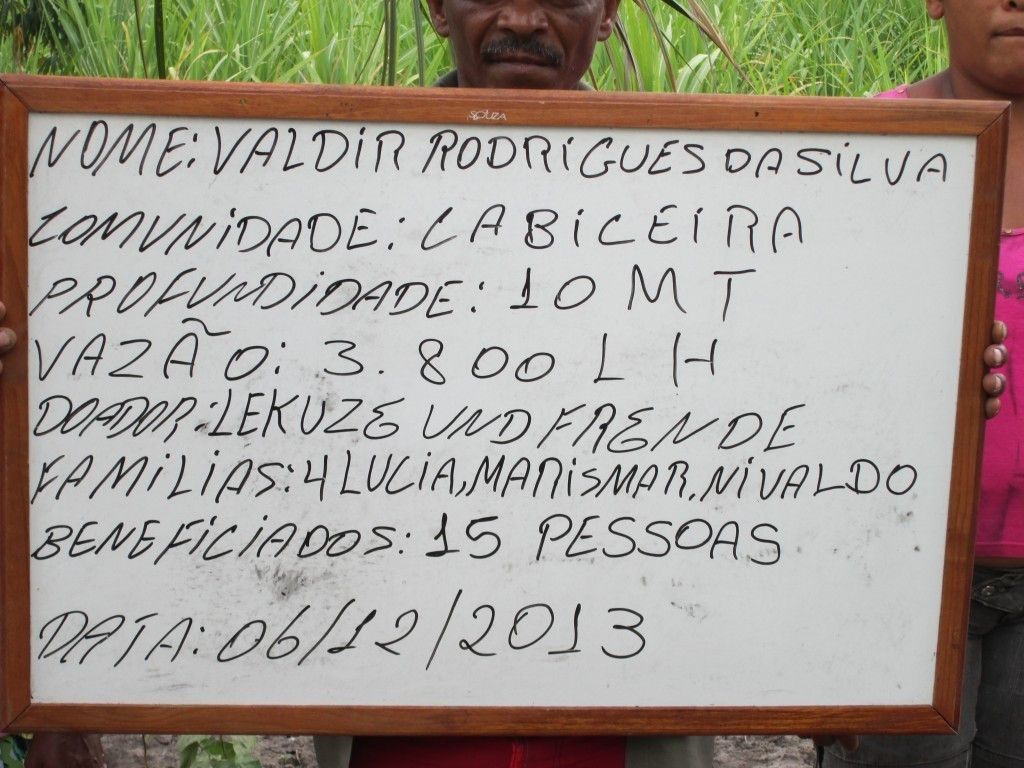 SOUZA
NOME: VALDIR RODRIGUES DA SILVA
COMUNIDADE: CABICEIRA
PROFUNDIDADE: 10 MT
VAZÃO: 3.800 L H
DOADOR: LEKUZE UND FRENDE
FAMILIAS: 4 LUCIA, MARISMAR, NIVALDO
BENEFICIADOS: 15 PESSOAS
DATA: 06/12/2013